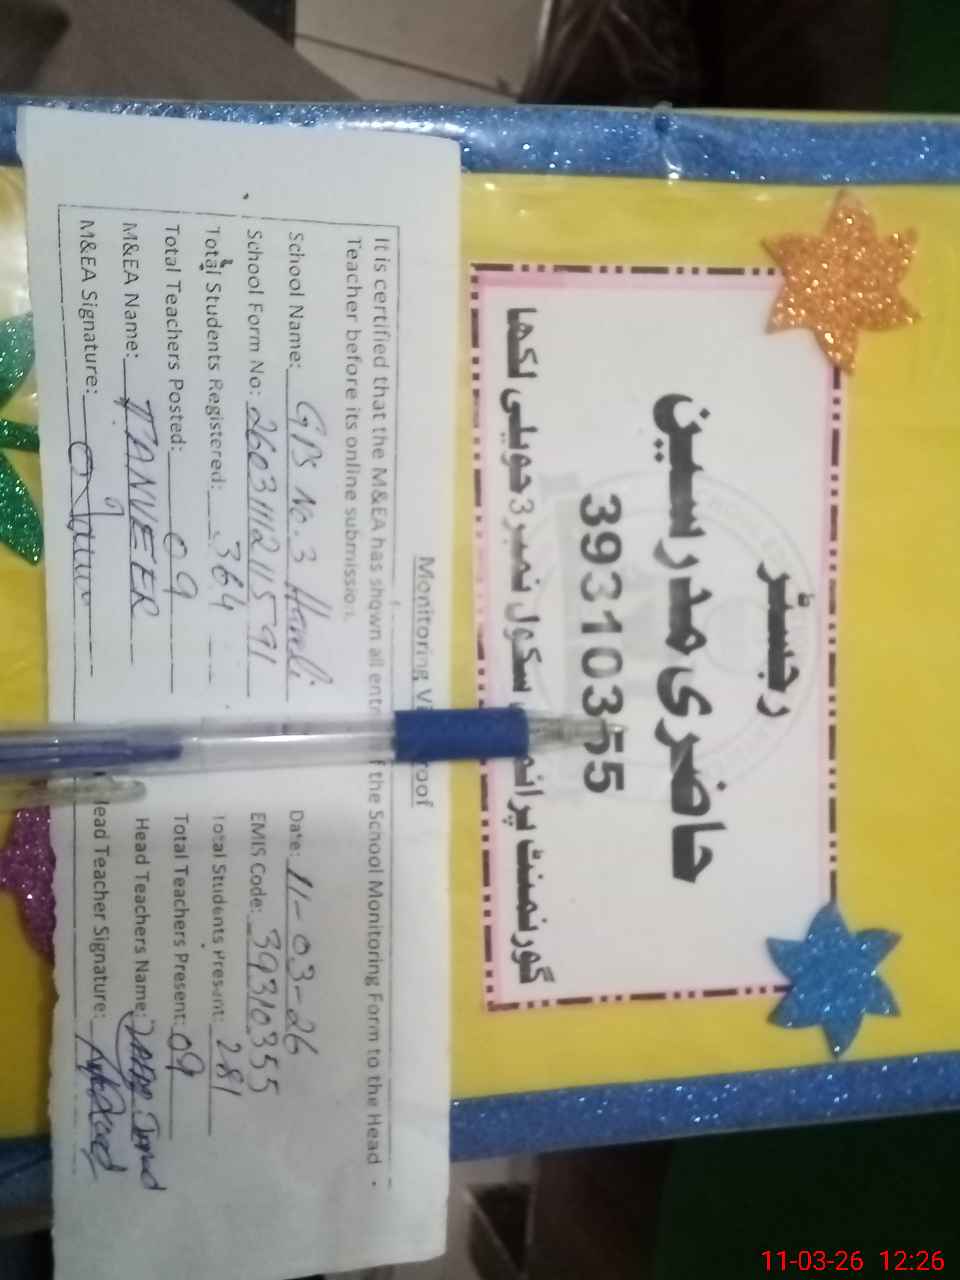 رجسٹر
حاضری مدرسین
39310355
گورنمنٹ پرائمری سکول نمبر 3 حویلی لکھا
Monitoring
It is certified that the M&EA has shown all the School Monitoring Form to the Head
Teacher before its online submission.
School Name: GPS No. 3 Haveli Date: 11-03-26
School Form No: 260311121591 EMIS Code: 39310355
Total Students Registered: 364 Total Students Present: 281
Total Teachers Posted: 09 Total Teachers Present: 09
M&EA Name: TANVEER Head Teachers Name:
M&EA Signature: Head Teacher Signature:
11-03-26 12:26